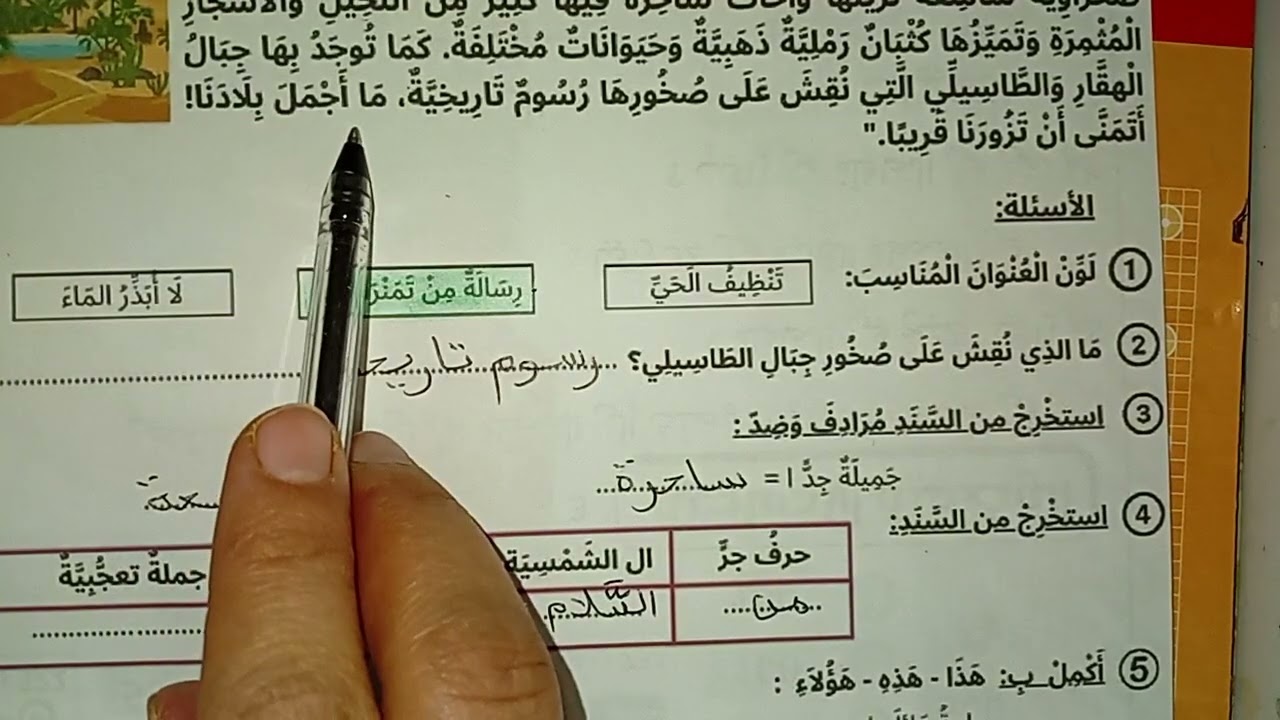 صَحْرَاوِيَّة شَاسِعَة تُزَيِّنُهَا وَاحَاتٌ سَاحِرَةٌ فِيهَا كَثِيرٌ مِنَ النَّخِيلِ وَالأَشْجَارِ
الْمُثْمِرَةِ وَتَمَيِّزُهَا كُثْبَانٌ رَمْلِيَّةٌ ذَهَبِيَّةٌ وَحَيَوَانَاتٌ مُخْتَلِفَةٌ. كَمَا تُوجَدُ بِهَا جِبَالُ
الْهقَّارِ وَالطَّاسِيلِّي الَّتِي نُقِشَ عَلَى صُخُورِهَا رُسُومٌ تَارِيخِيَّةٌ، مَا أَجْمَلَ بِلَادَنَا!
أَتَمَنَّى أَنْ تَزُورَنَا قَرِيبًا."
الأسئلة:
1 لَوِّنْ الْعُنْوَانَ الْمُنَاسِبَ: تَنْظِيفُ الَحَيِّ رِسَالَةٌ مِنْ لَا أُبَذِّرُ المَاءَ
2 مَا الذِي نُقِشَ عَلَى صُخُورِ جِبَالِ الطَاسِيلِي؟ رسوم
3 استخْرِجْ مِن السَّنَدِ مُرَادِفَ وَضِدّ :
جَمِيلَةٌ جِدًّ ا = ساحرة
4 استخْرِجْ مِن السَّنَدِ:
حرفُ جرٍّ ال الشَمْسِيَة جملةٌ تعجُّبِيَّةٌ
من السَّلام
5 أَكْمِلْ بِ: هَذَا - هَذِهِ - هَؤُلاَءِ :